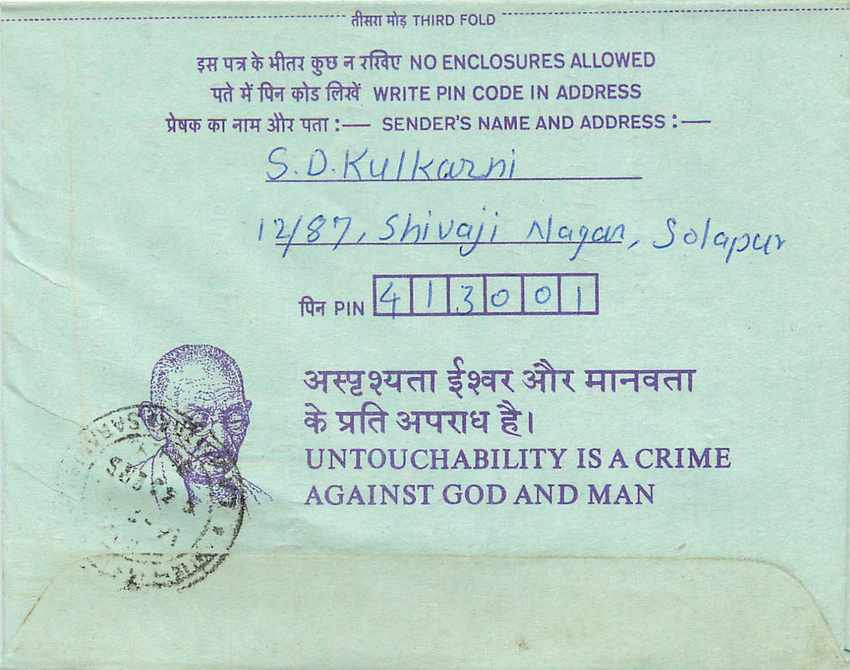 तीसरा मोड़ THIRD FOLD
इस पत्र के भीतर कुछ न रखिए NO ENCLOSURES ALLOWED
पते में पिन कोड लिखें WRITE PIN CODE IN ADDRESS
प्रेषक का नाम और पता :— SENDER'S NAME AND ADDRESS :—
S.D.Kulkarni
12/87, Shivaji Nagar, Solapur
पिन PIN 413001
अस्पृश्यता ईश्वर और मानवता
के प्रति अपराध है।
UNTOUCHABILITY IS A CRIME
AGAINST GOD AND MAN